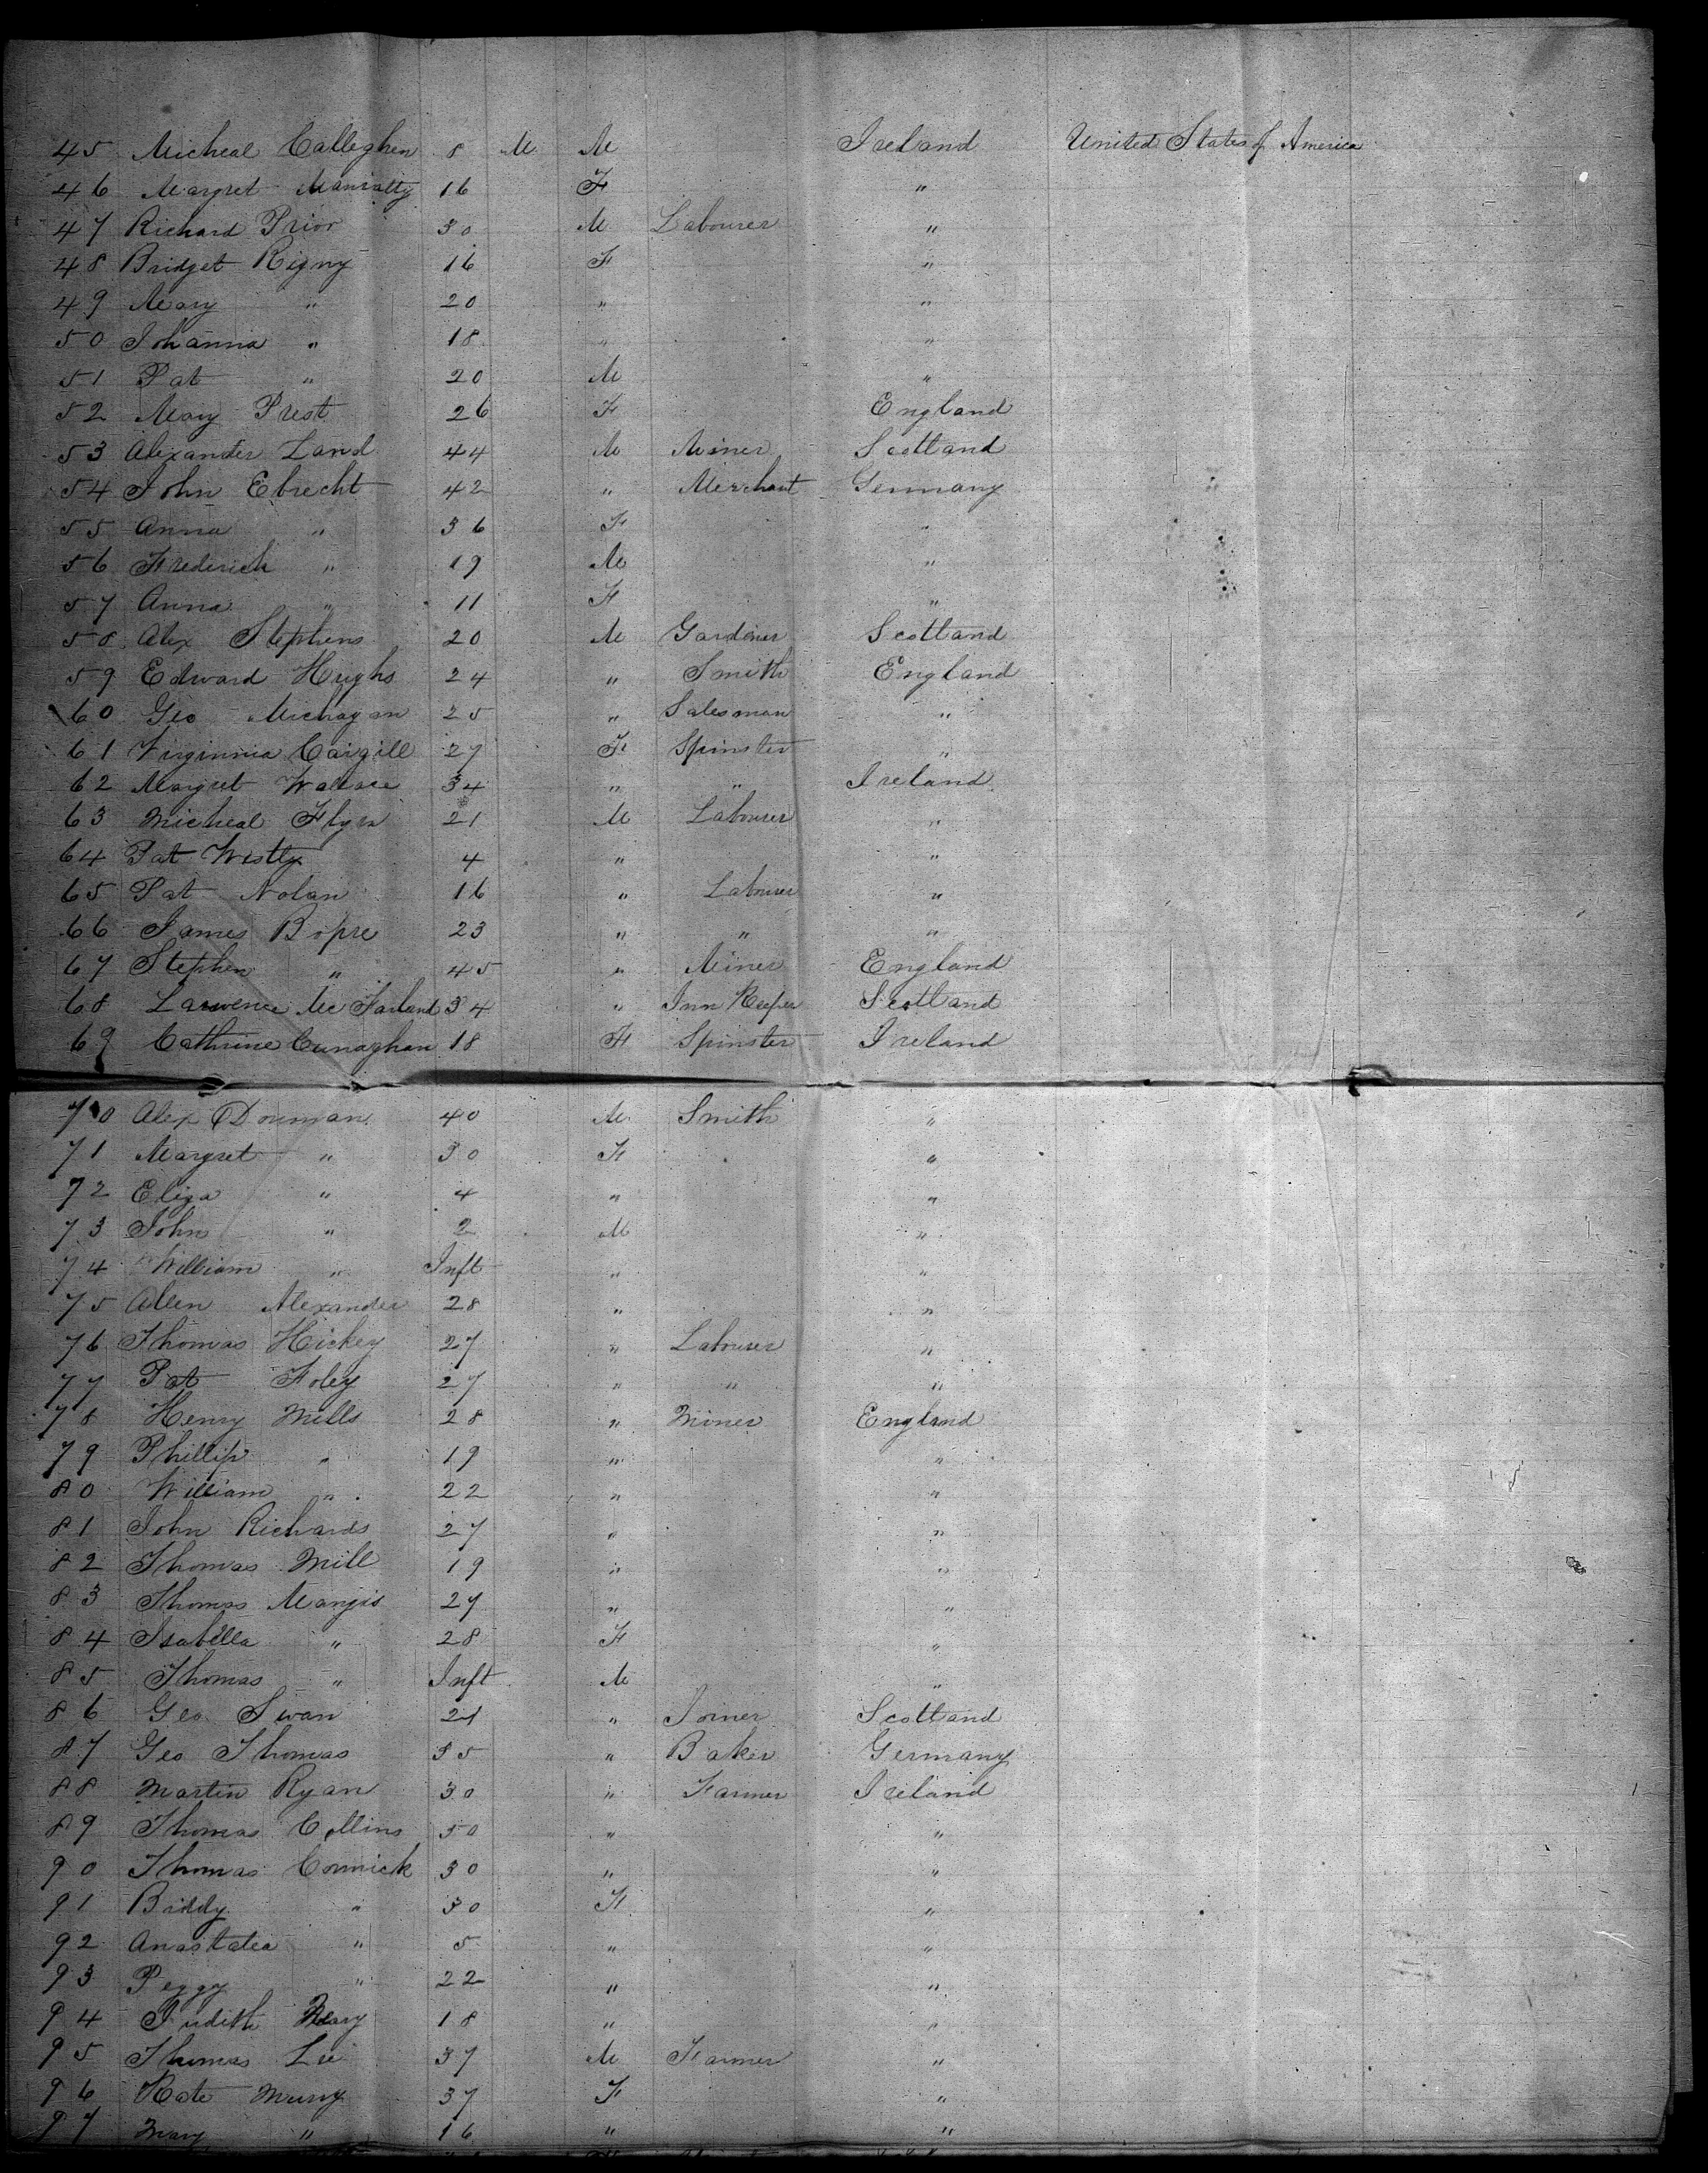 45 Micheal Calleghen 8 M M Ireland United States of America
46 Margret 16 F "
47 Richard Prior 30 M Labourer "
48 Bridget Rigny 16 F "
49 Mary " 20 " "
50 Johanna " 18 " "
51 Pat " 20 M "
52 Mary Prest 26 F England
53 Alexander Land 44 M Miner Scotland
54 John Ebrecht 42 " Merchant Germany
55 Anna " 36 F "
56 Frederick " 19 M "
57 Anna " 11 F "
58 Alex Stephens 20 M Gardiner Scotland
59 Edward Hughs 24 " Smith England
60 Geo Michagan 25 " Salesman "
61 Virginnia Cargill 27 F Spinster "
62 Margret Wallace 34 " " Ireland
63 Micheal Flyn 21 M Labourer "
64 Pat Westly 4 " "
65 Pat Nolan 16 " Labourer "
66 James Bopre 23 " " "
67 Stephen " 45 " Miner England
68 Lawrence Mc Farland 34 " Inn Keeper Scotland
69 Cathrine Cunaghan 18 F Spinster Ireland
70 Alex Dorman 40 M Smith "
71 Margret " 30 F "
72 Eliza " 4 " "
73 John " 2 M "
74 William " Inft " "
75 Allen Alexander 28 " "
76 Thomas Hickey 27 " Labourer "
77 Pat Foley 27 " " "
78 Henry Mills 28 " Miner England
79 Phillip " 19 " "
80 William " 22 " "
81 John Richards 27 " "
82 Thomas Mill 19 " "
83 Thomas Mangis 27 " "
84 Isabella " 28 F "
85 Thomas " Inft M "
86 Geo Swan 21 " Joiner Scotland
87 Geo Thomas 35 " Baker Germany
88 Martin Ryan 30 " Farmer Ireland
89 Thomas Collins 50 " "
90 Thomas Cormick 30 " "
91 Biddy " 30 F "
92 Anastatea " 5 " "
93 Peggy " 22 " "
94 Judith 18 " "
95 Thomas Lee 37 M Farmer "
96 Kate Murry 37 F "
97 Mary " 16 " "